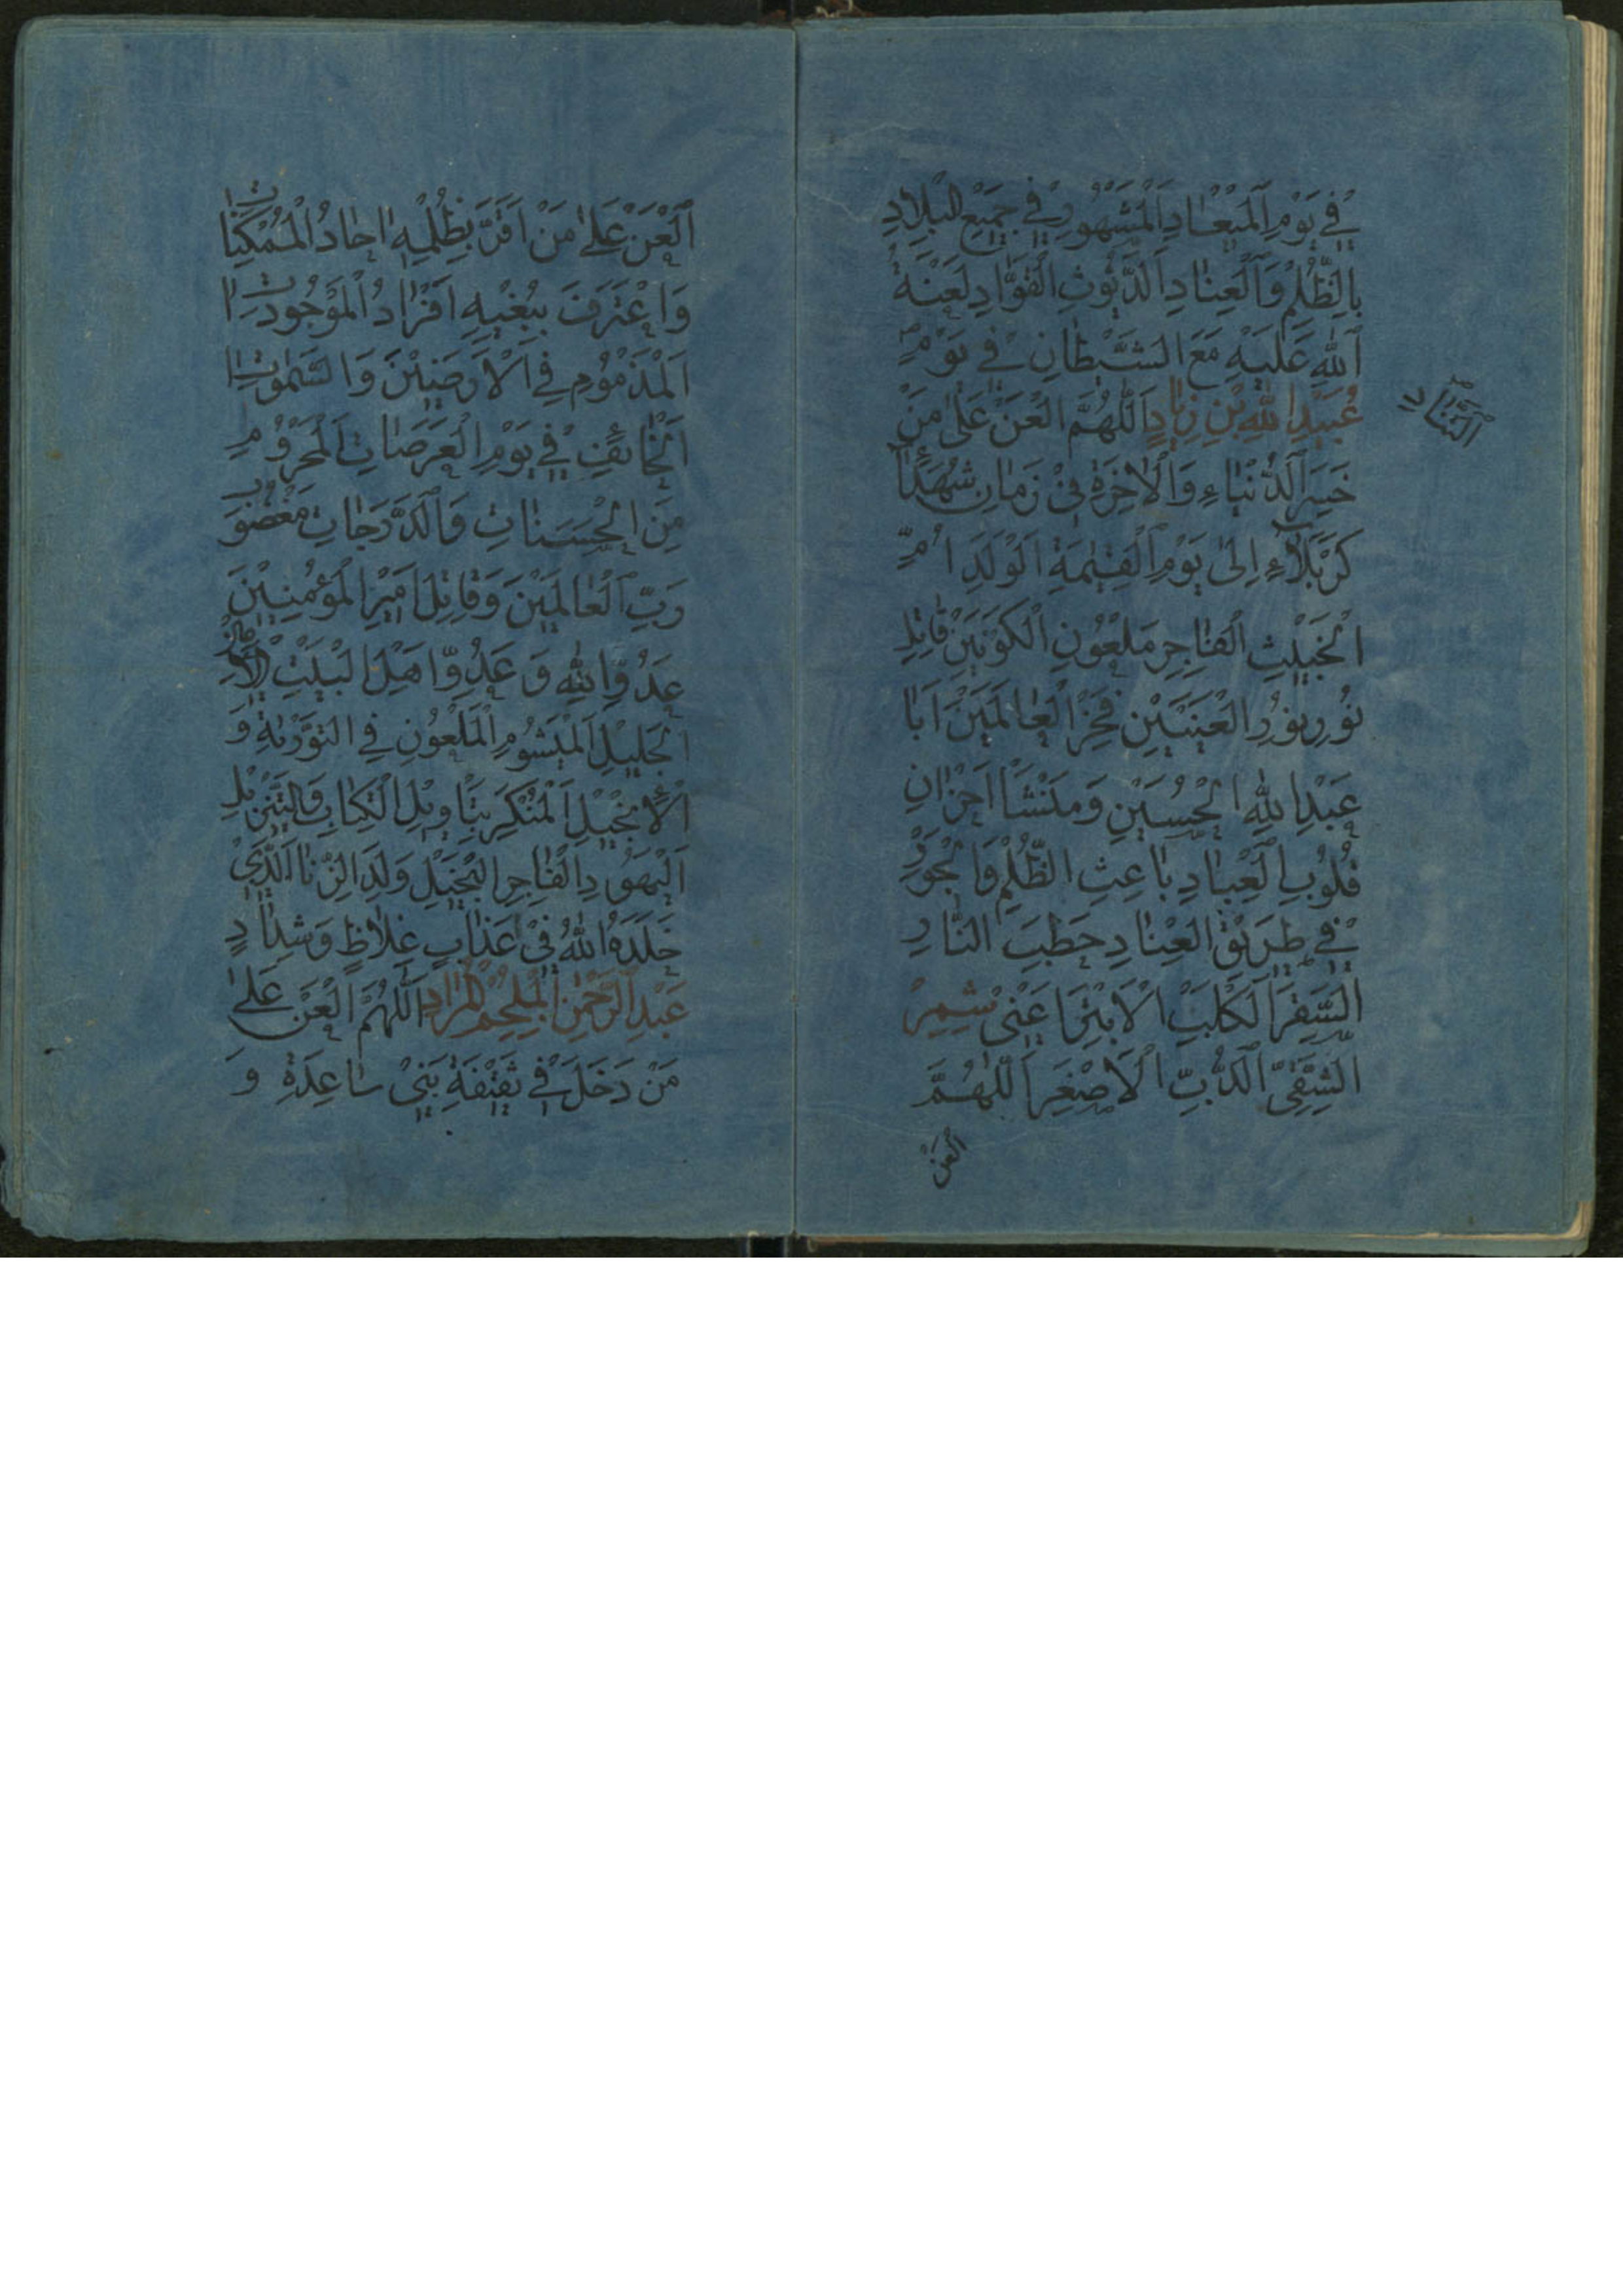 فِي يَوْمِ الْمِيعَادِ الْمَشْهُورِ فِي جَمِيعِ الْبِلَادِ
بِالظُّلْمِ وَالْعِنَادِ الدَّيُّوثِ الْقَوَّادِ لَعْنَةُ
اللّٰهِ عَلَيْهِ مَعَ الشَّيْطَانِ فِي يَوْمِ
التَّنَادِ
عُبَيْدِ اللّٰهِ بْنِ زِيَادٍ اَللّٰهُمَّ الْعَنْ عَلَىٰ مَنْ
خَسِرَ الدُّنْيَاءِ وَالْاٰخِرَةِ فِي زَمَانِ شُهَدَاءِ
كَرْبَلَاءِ اِلَىٰ يَوْمِ الْقِيٰمَةِ الْوَلَدِ
الْخَبِيثِ الْفَاجِرِ مَلْعُونِ الْكَوْنَيْنِ قَاتِلِ
نُورِ نُورِ الْعَيْنَيْنِ فَخْرِ الْعَالَمَيْنِ اَبَا
عَبْدِ اللّٰهِ الْحُسَيْنِ وَمَنْشَاْ اَحْزَانِ
قُلُوبِ الْعِبَادِ بَاعِثِ الظُّلْمِ وَالْجَوْرِ
فِي طَرِيقِ الْعِنَادِ حَطَبِ النَّارِ
السَّقَرِ الْكَلْبِ الْاَبْتَرِ اَعْنِي شِمِرْ
الشَّقِيِّ الدُّبِّ الْاَصْغَرِ اَللّٰهُمَّ
الْعَنْ
اَلْعَنْ عَلَىٰ مَنْ اَقَرَّ بِظُلْمِهِ اٰحَادُ الْمُمْكِنَاتِ
وَاعْتَرَفَ بِبُغْيِهِ اَفْرَادُ الْمَوْجُودَاتِ
الْمَذْمُومِ فِي الْاَرَضِينَ وَالسَّمٰوَاتِ
الْخَائِفِ فِي يَوْمِ الْعَرَصَاتِ الْمَحْرُومِ
مِنَ الْحَسَنَاتِ وَالدَّرَجَاتِ مَغْضُوبِ
رَبِّ الْعَالَمِينَ وَقَاتِلِ اَمِيرِ الْمُؤْمِنِينَ
عَدُوِّ اللّٰهِ وَ عَدُوِّ اَهْلِ الْبَيْتِ
الْجَلِيلِ الْمَيْشُومِ الْمَلْعُونِ فِي التَّوْرٰيةِ وَ
الْاِنْجِيلِ الْمُنْكَرِ بِتَاْوِيلِ الْكِتَابِ وَالتَّنْزِيلِ
الْيَهُودِ الْفَاجِرِ الْبَخِيلِ وَلَدِ الزِّنَا الَّذِي
خَلَدَهُ اللّٰهُ فِي عَذَابٍ غِلَاظٍ وَشِدَادٍ
عَبْدِ الرَّحْمٰنِ الْمُلْجَمِ الْمُرَادِ اَللّٰهُمَّ الْعَنْ عَلَىٰ
مَنْ دَخَلَ فِي ثَقِيفَةِ بَنِي سَاعِدَةِ وَ